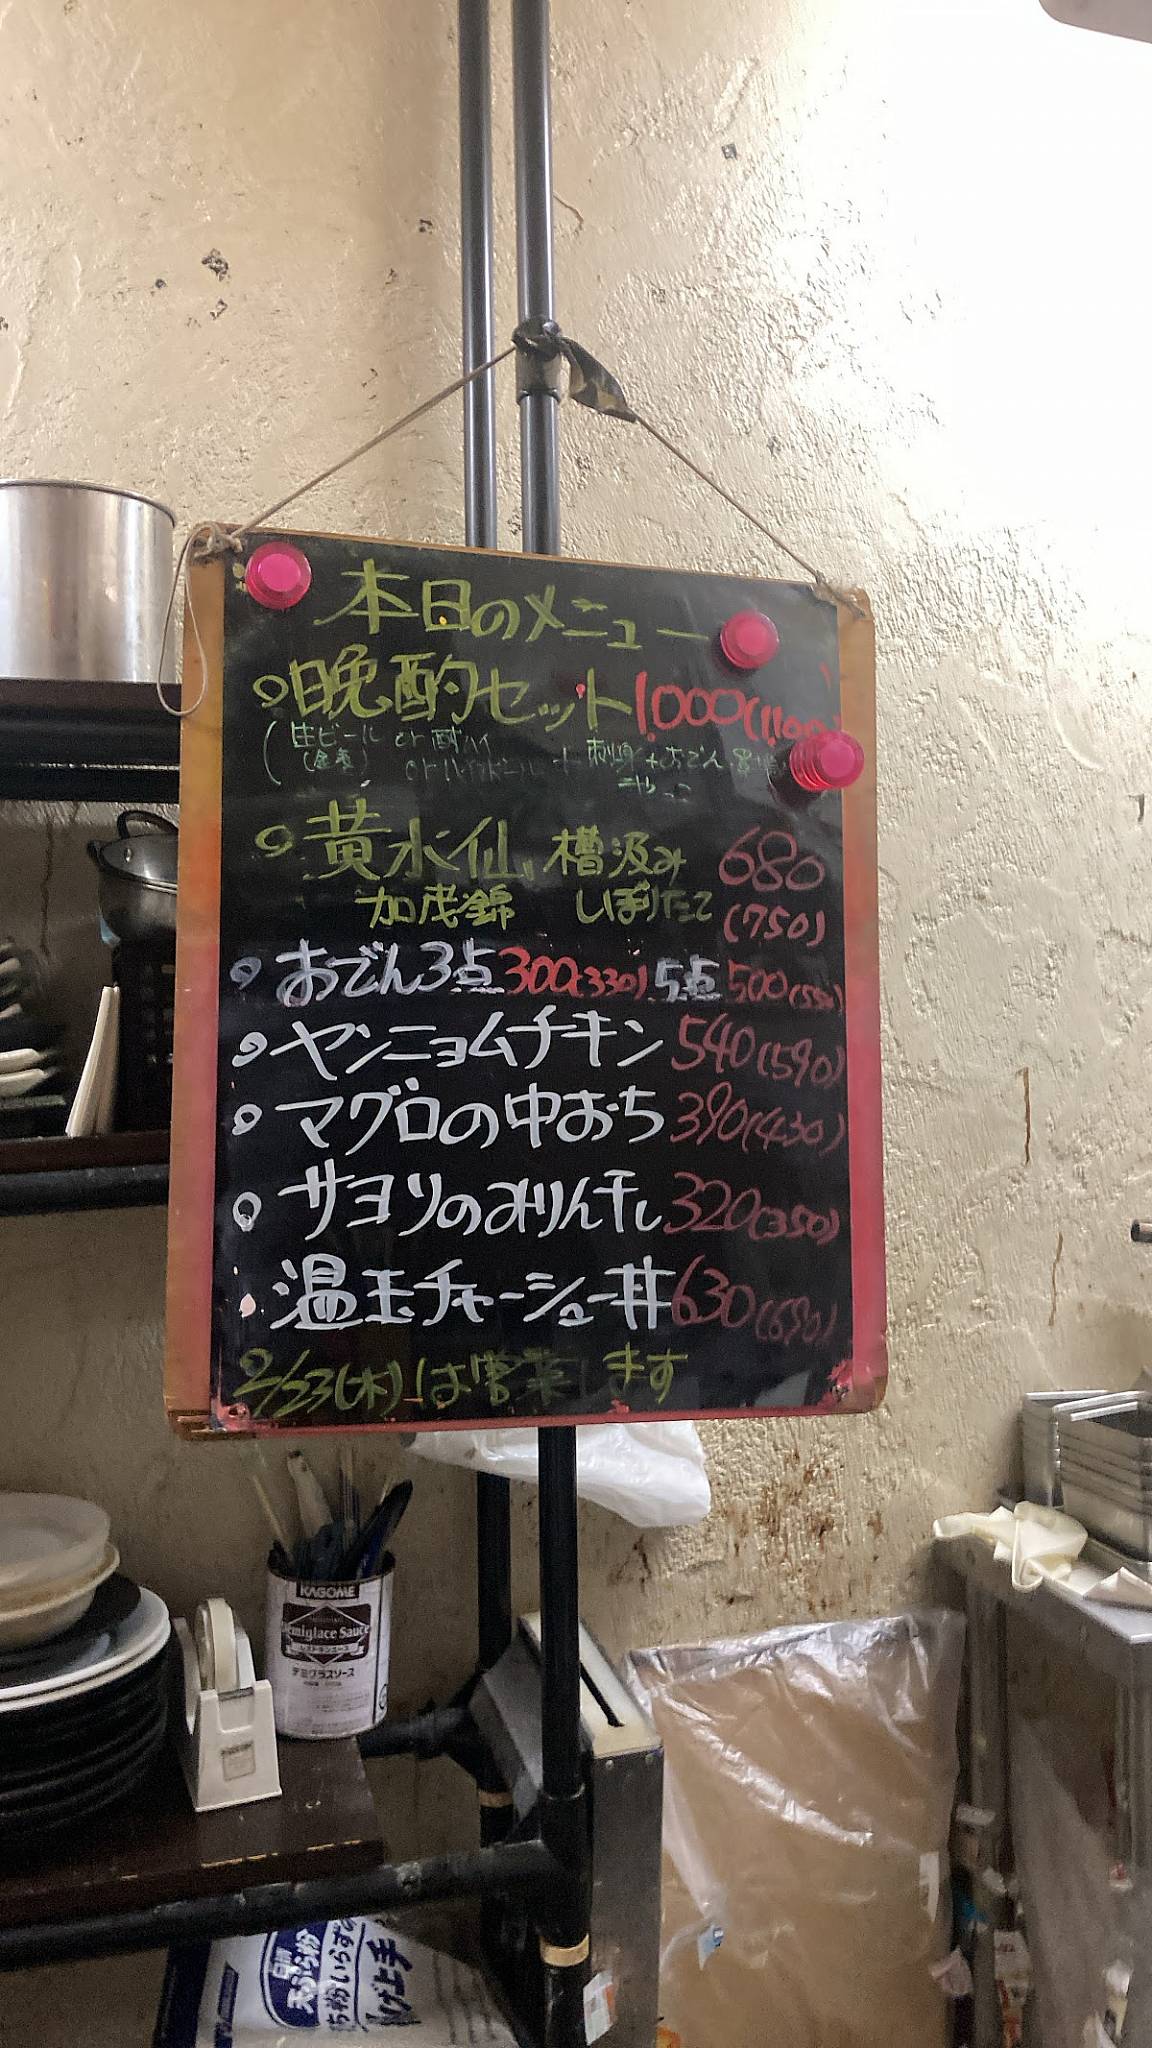 本日のメニュー
○晩酌セット 1,000(1,100)
(生ビール or 酎ハイ
(金麦) or ハイボール + 刺身 + おでん
○黄水仙 槽汲み 680
加茂錦 しぼりたて (750)
○おでん3点 300(330) 5点 500(550)
○ヤンニョムチキン 540(590)
○マグロの中おち 390(430)
○サヨリのみりん干し 320(350)
○温玉チャーシュー丼 630(690)
○2/23(木)は営業します
KAGOME
Demiglace Sauce
デミグラスソース
日清
天ぷら粉